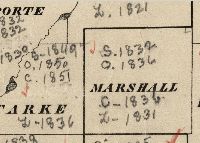 PORTE
L. 1821
1832
1832
1830
S-1849
O. 1850
C. 1851
S. 1832
O. 1836
MARSHALL
C- 1836
L- 1831
TARKE
L-1836
1839